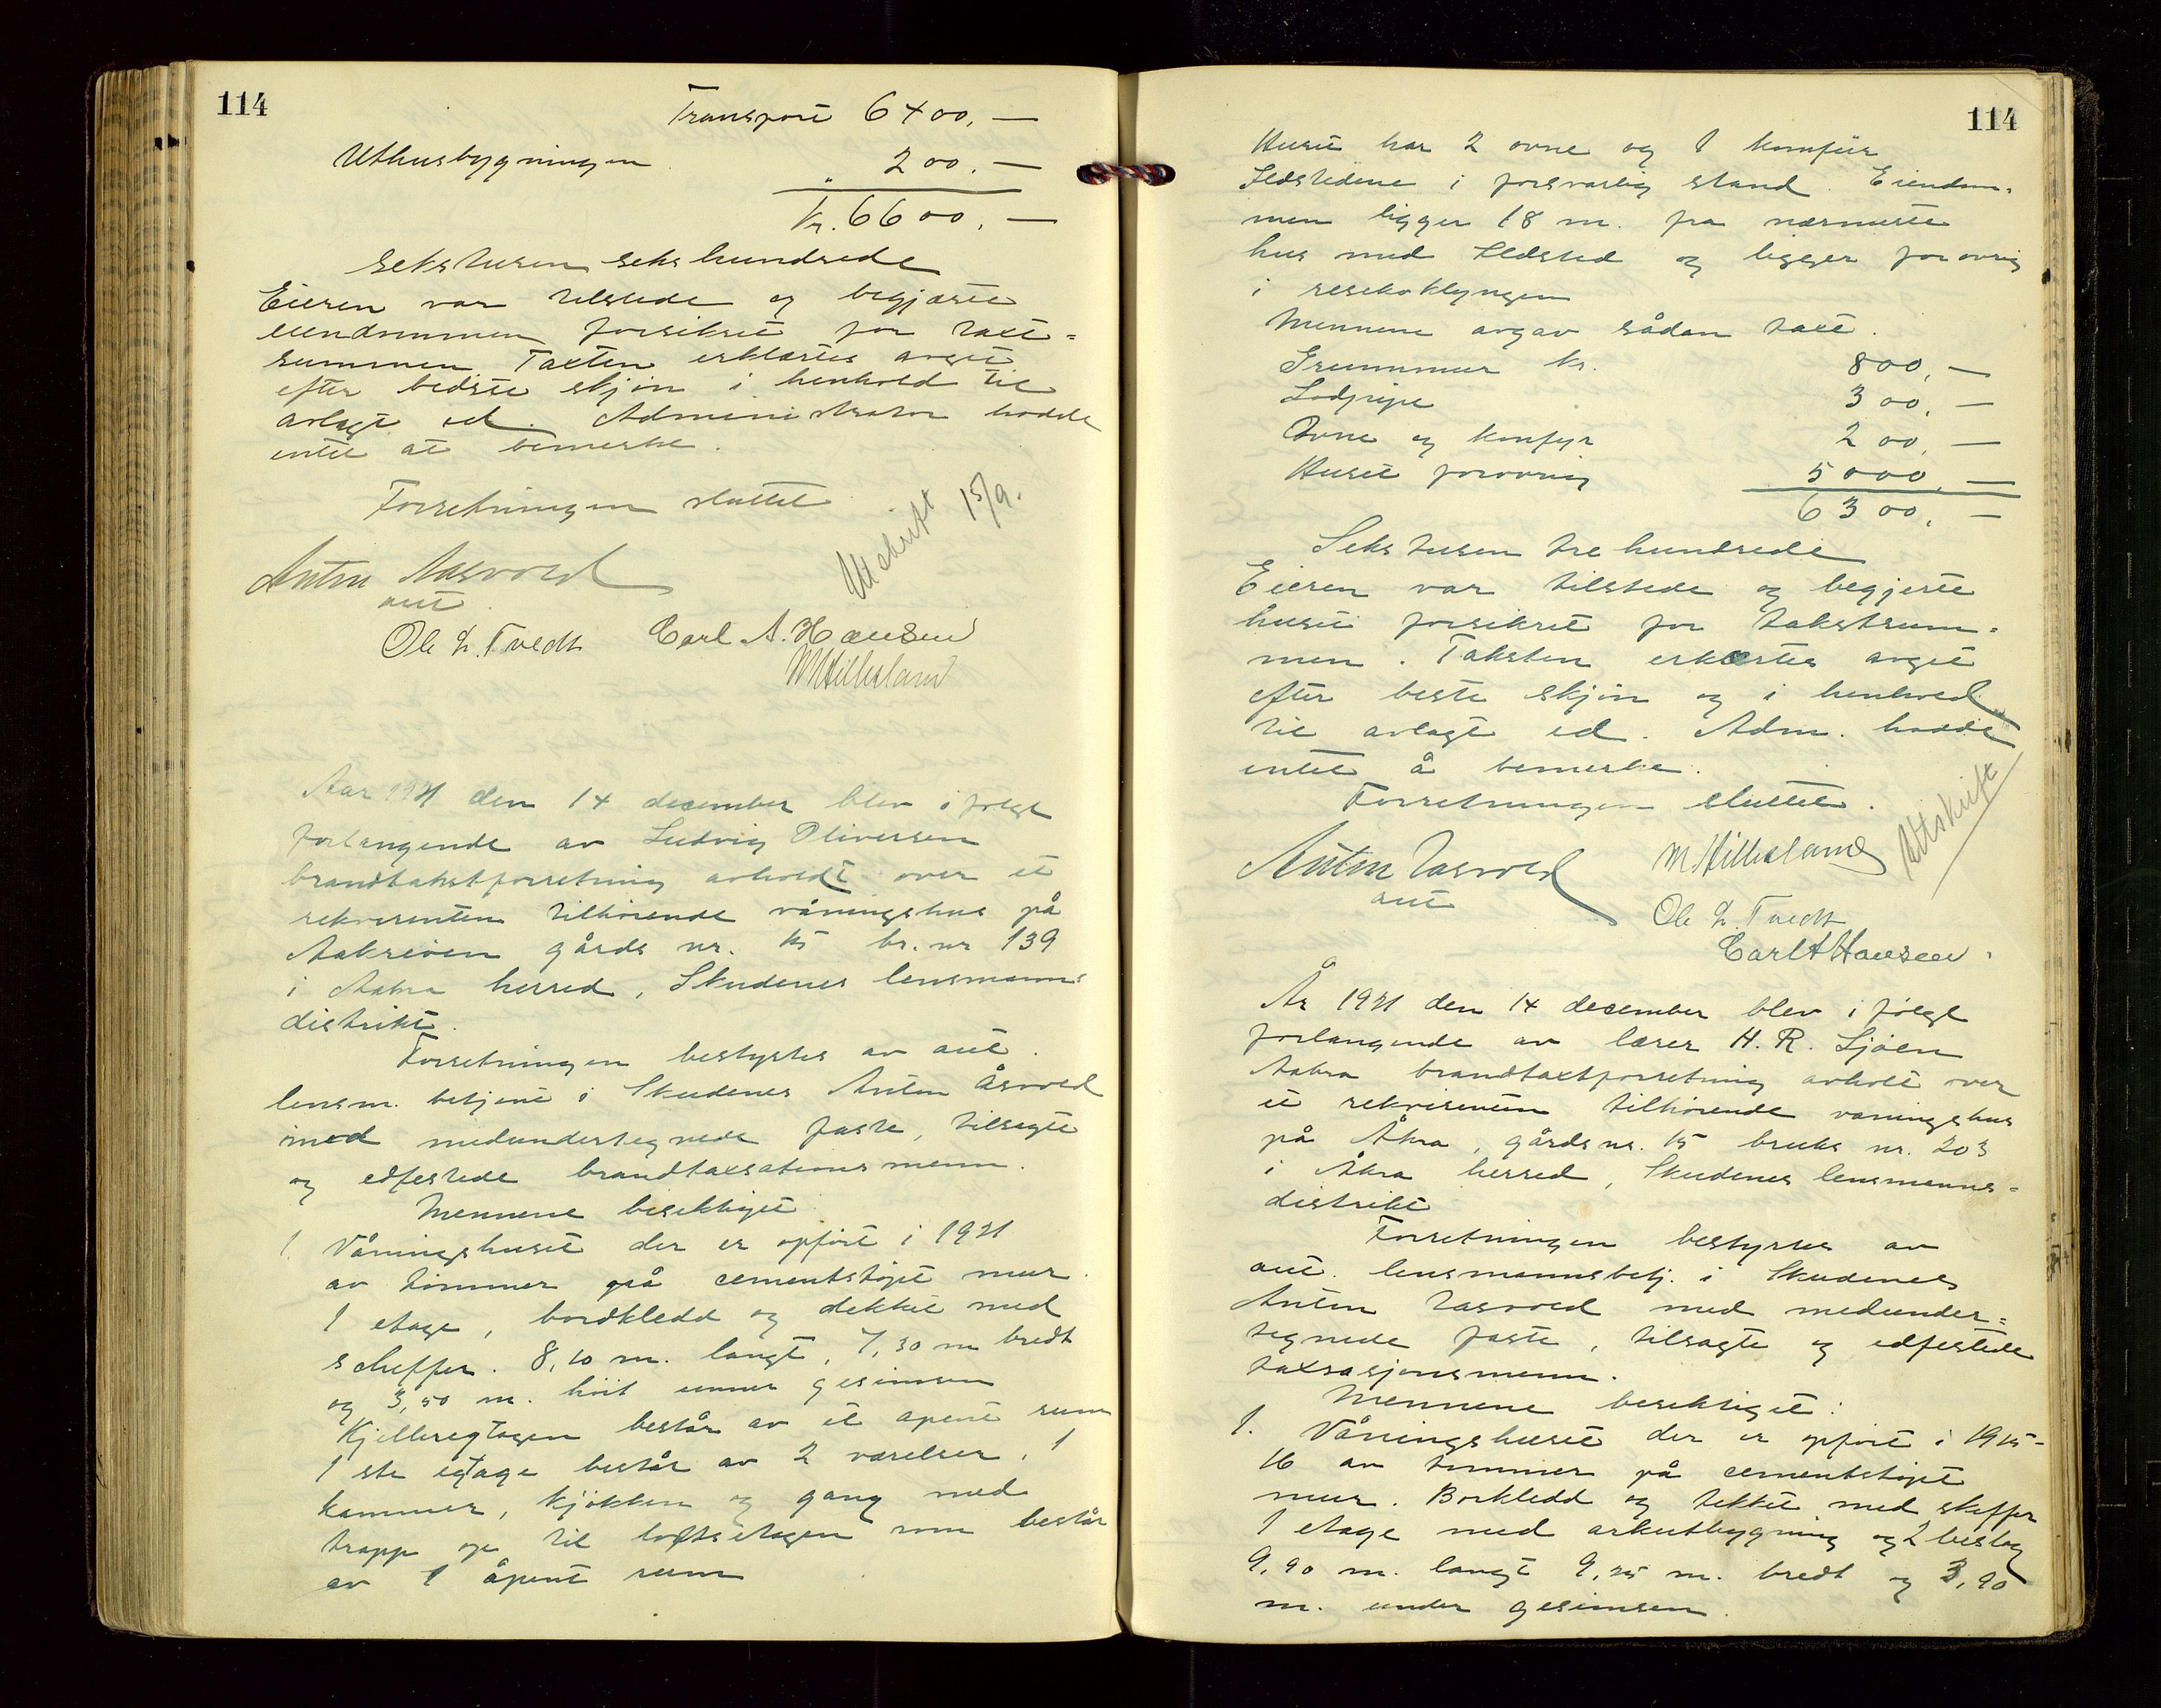 114
Transport 6400,—
Uthusbygningen " 200.—
Kr. 6600,—
Sekstusen sekshundrede
Eieren var tilstede og begjærte
eiendommen forsikret for taxt=
summen Taxten erklærtes avgit
efter bedste skjön i henhold til
avlagt ed. Administrator hadde
intet at bemerke.
Forretningen sluttet
Utskrift 15/9.
Anton Aasvold
aut.
Ole L. Tvedt Carl A. Hansen
M Hillesland
Aar 1931 den 14 december blev i følge
forlangende av Ludvig Oliversen
brandtakstforretning avholdt over et
rekvirenten tilhörende våningshus på
Aakreöen gårds nr. 15 br. nr 139
i Aakra herred, Skudenes lensmanns
distrikt.
Forretningen bestyrtes av aut.
lensm. betjent i Skudenes Anton Åsvold
med medundertegnede faste, tilsagte
og edfestede brandtaxsationsmenn.
Mennene besiktiget
1. Våningshuset der er opfört i 1931
av tömmer på cementstöpt mur.
1 etage, bordkledd og dekket med
scheffer. 8,10 m. langt, 7,30 m bredt
og 3,50 m. höit under gesimsen
Kjelleregtagen består av et åpent rum
1ste egtage består av 2 værelser, 1
kammer, kjökken og gang med
trapp op til loftsetagen som består
av 1 åpent rum
114
Huset har 2 ovne og 1 komfür
Ildstedene i forsvarlig stand. Eiendom=
men ligger 18 m. fra nærmeste
hus med Ildsted og ligger forövrig
i
Mennene avgav sådan taxt.
Grunnmur kr. 800,—
Lodpipe 300,—
Ovne og komfyr 200,—
Huset forövrig 5000,—
6300,—
Seks tusen tre hundrede
Eieren var tilstede og begjerte
huset forsikret for takstsum=
men. Taksten erklærtes avgit
efter beste skjön og i henhold
til avlagt ed. Adm. hadde
intet å bemerke.
Forretningen sluttet.
Utskrift
Anton Aasvold M Hillesland
aut
Ole L. Tvedt
Carl A Hansen.
År 1931 den 14 december blev i fölge
forlangende av lærer H. R. Sjöen
Aakra brandtaxtforretning avholt over
et rekvirenten tilhörende våningshus
på Åkra, gårdsnr. 15 bruks nr. 203
i Åkra herred, Skudenes lensmanns=
distrikt
Forretningen bestyrtes av
aut. lensmannsbetj. i Skudenes
Anton Aasvold med medunder=
tegnede faste, tilsagte og edfestede
taxsasjonsmenn.
Mennene besiktiget:
1. Våningshuset der er opfört i 1915-
16 av tömmer på cementstöpt
mur. Borkledd og tekket med skeffer
1 etage med arkutbygning og 2 beslag
9,90 m. langt 9,25 m. bredt og 3,90
m. under gesimsen.